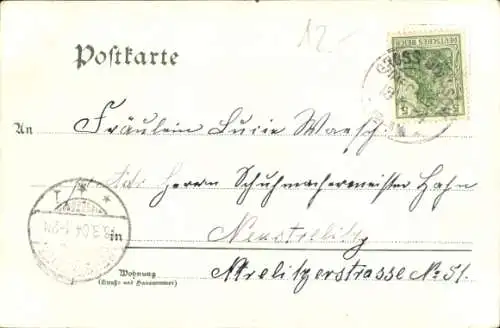 12.-
Postkarte
DEUTSCHES REICH
5 5
GROSS
An Fräulein Lucie Waesch
Adr. Herrn Schuhmachermeister Hahn
in Neustrelitz
Strelitzerstrasse No. 51.
3.3.04. 1-2N
Wohnung
(Straße und Hausnummer)